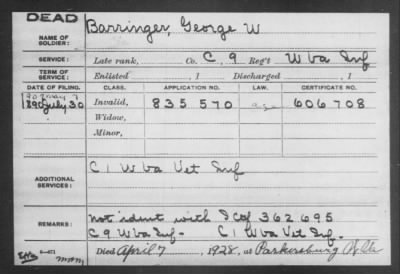 DEAD
NAME OF SOLDIER: Barringer, George W
SERVICE: Late rank, Co. C, 9 Reg't W Va Inf
TERM OF SERVICE: Enlisted , 1 Discharged , 1
DATE OF FILING. CLASS. APPLICATION NO. LAW. CERTIFICATE NO.
1890 July 30 Invalid, 835 570 606 708
Widow,
Minor,
ADDITIONAL SERVICES: C 1 W Va Vet Inf
REMARKS: not ident with 362 695
C 9 W Va Inf - C 1 W Va Vet Inf.
Died April 7, 1928, at Parkersburg W Va